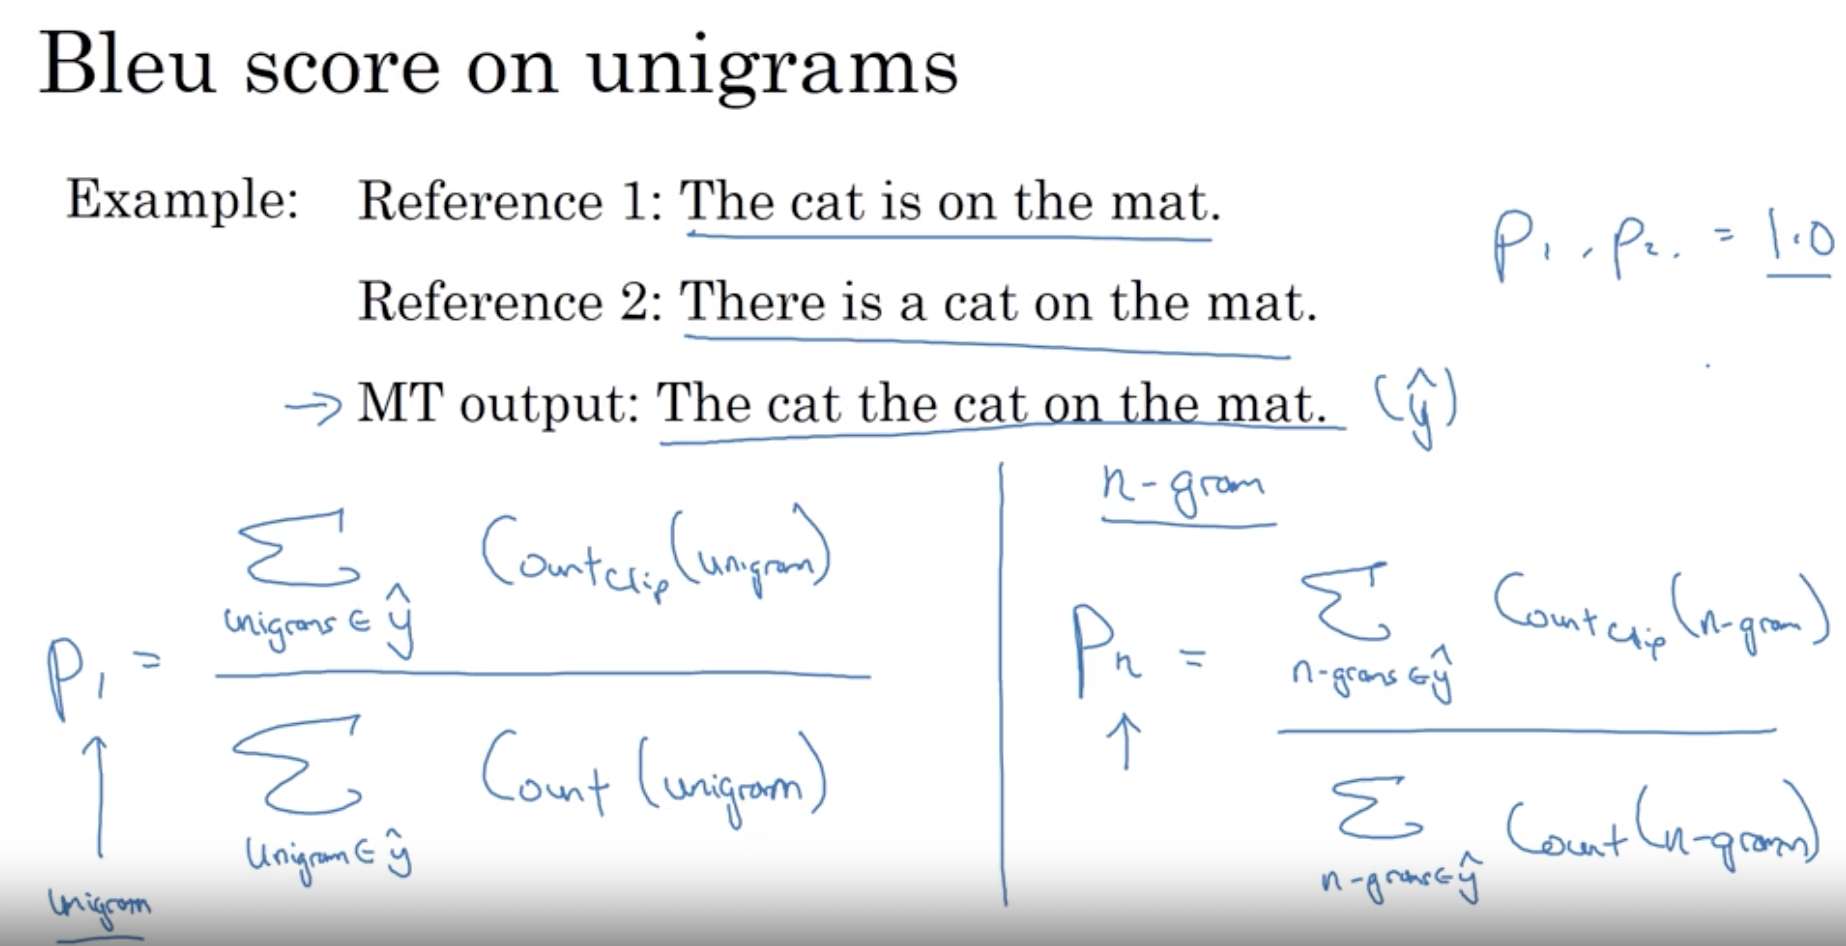 Bleu score on unigrams
Example: Reference 1: The cat is on the mat.
P₁, P₂. = 1.0
Reference 2: There is a cat on the mat.
→ MT output: The cat the cat on the mat. (ŷ)
P₁ =
Σ Count clip (unigram)
unigrams ∈ ŷ
Σ Count (unigram)
Unigram ∈ ŷ
↑
unigram
n-gram
Pₙ =
↑
Σ Count clip (n-gram)
n-grams ∈ ŷ
Σ Count (n-gram)
n-grams ∈ ŷ